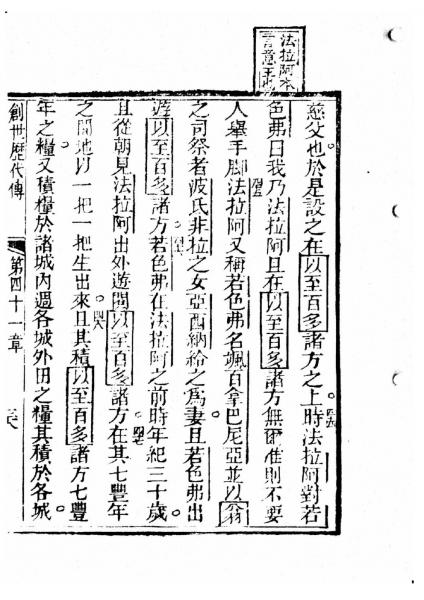 法拉阿本
言意王也
慈父也於是設之在以至百多諸方之上時法拉阿對若
色弗曰我乃法拉阿且在以至百多諸方無爾准則不要
人舉手脚法拉阿又稱若色弗名颯百拿巴尼亞並以翁
之司祭者波氏非拉之女亞西納給之為妻且若色弗出
遊以至百多諸方若色弗在法拉阿之前時年紀三十歲
且從朝見法拉阿出外遊閱以至百多諸方在其七豐年
之間地以一把一把生出來且其積以至百多諸方七豐
年之糧又積糧於諸城內週各城外田之糧其積於各城
創世歷代傳 第四十一章